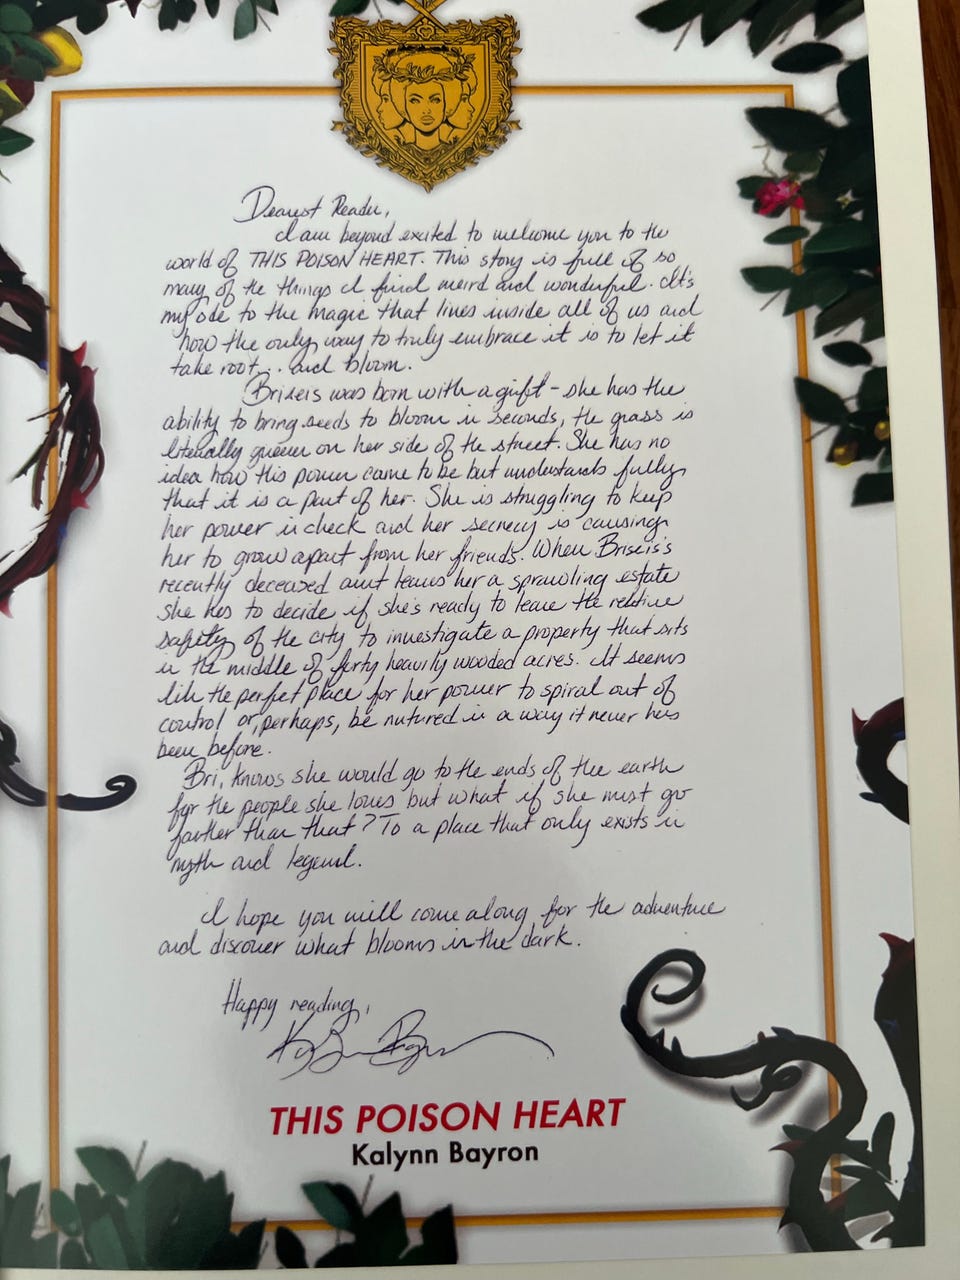 Dearest Reader,
I am beyond excited to welcome you to the
world of THIS POISON HEART. This story is full of so
many of the things I find weird and wonderful. It's
my ode to the magic that lives inside all of us and
how the only way to truly embrace it is to let it
take root... and bloom.
Briseis was born with a gift - she has the
ability to bring seeds to bloom in seconds, the grass is
literally greener on her side of the street. She has no
idea how this power came to be but understands fully
that it is a part of her. She is struggling to keep
her power in check and her secrecy is causing
her to grow apart from her friends. When Briseis's
recently deceased aunt leaves her a sprawling estate
she has to decide if she's ready to leave the relative
safety of the city to investigate a property that sits
in the middle of forty heavily wooded acres. It seems
like the perfect place for her power to spiral out of
control or, perhaps, be nutured in a way it never has
been before.
Bri, knows she would go to the ends of the earth
for the people she loves but what if she must go
farther than that? To a place that only exists in
myth and legend.
I hope you will come along for the adventure
and discover what blooms in the dark.
Happy reading,
Kalynn Bayron
THIS POISON HEART
Kalynn Bayron